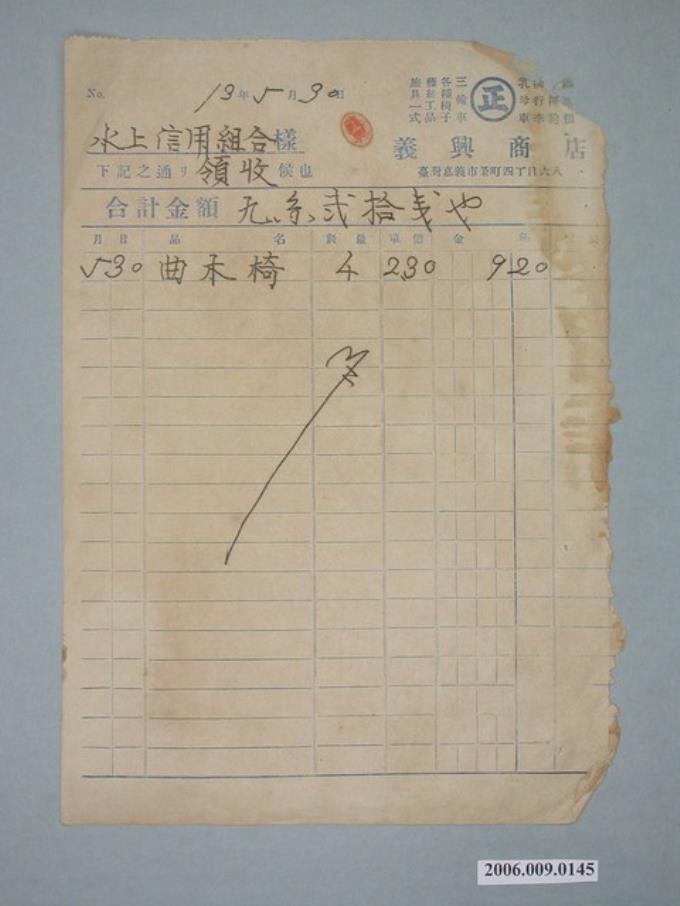 No. 13年5月30日
三輪車
各種椅子
藤細工品
旅具一式
正
水上信用組合樣
義興商店
下記之通リ領收候也
臺灣嘉義市榮町四丁目六八
合計金額 九円弐拾戔也
月 日 品名 數量 單價 金
5 30 曲木椅 4 230 920
2006.009.0145